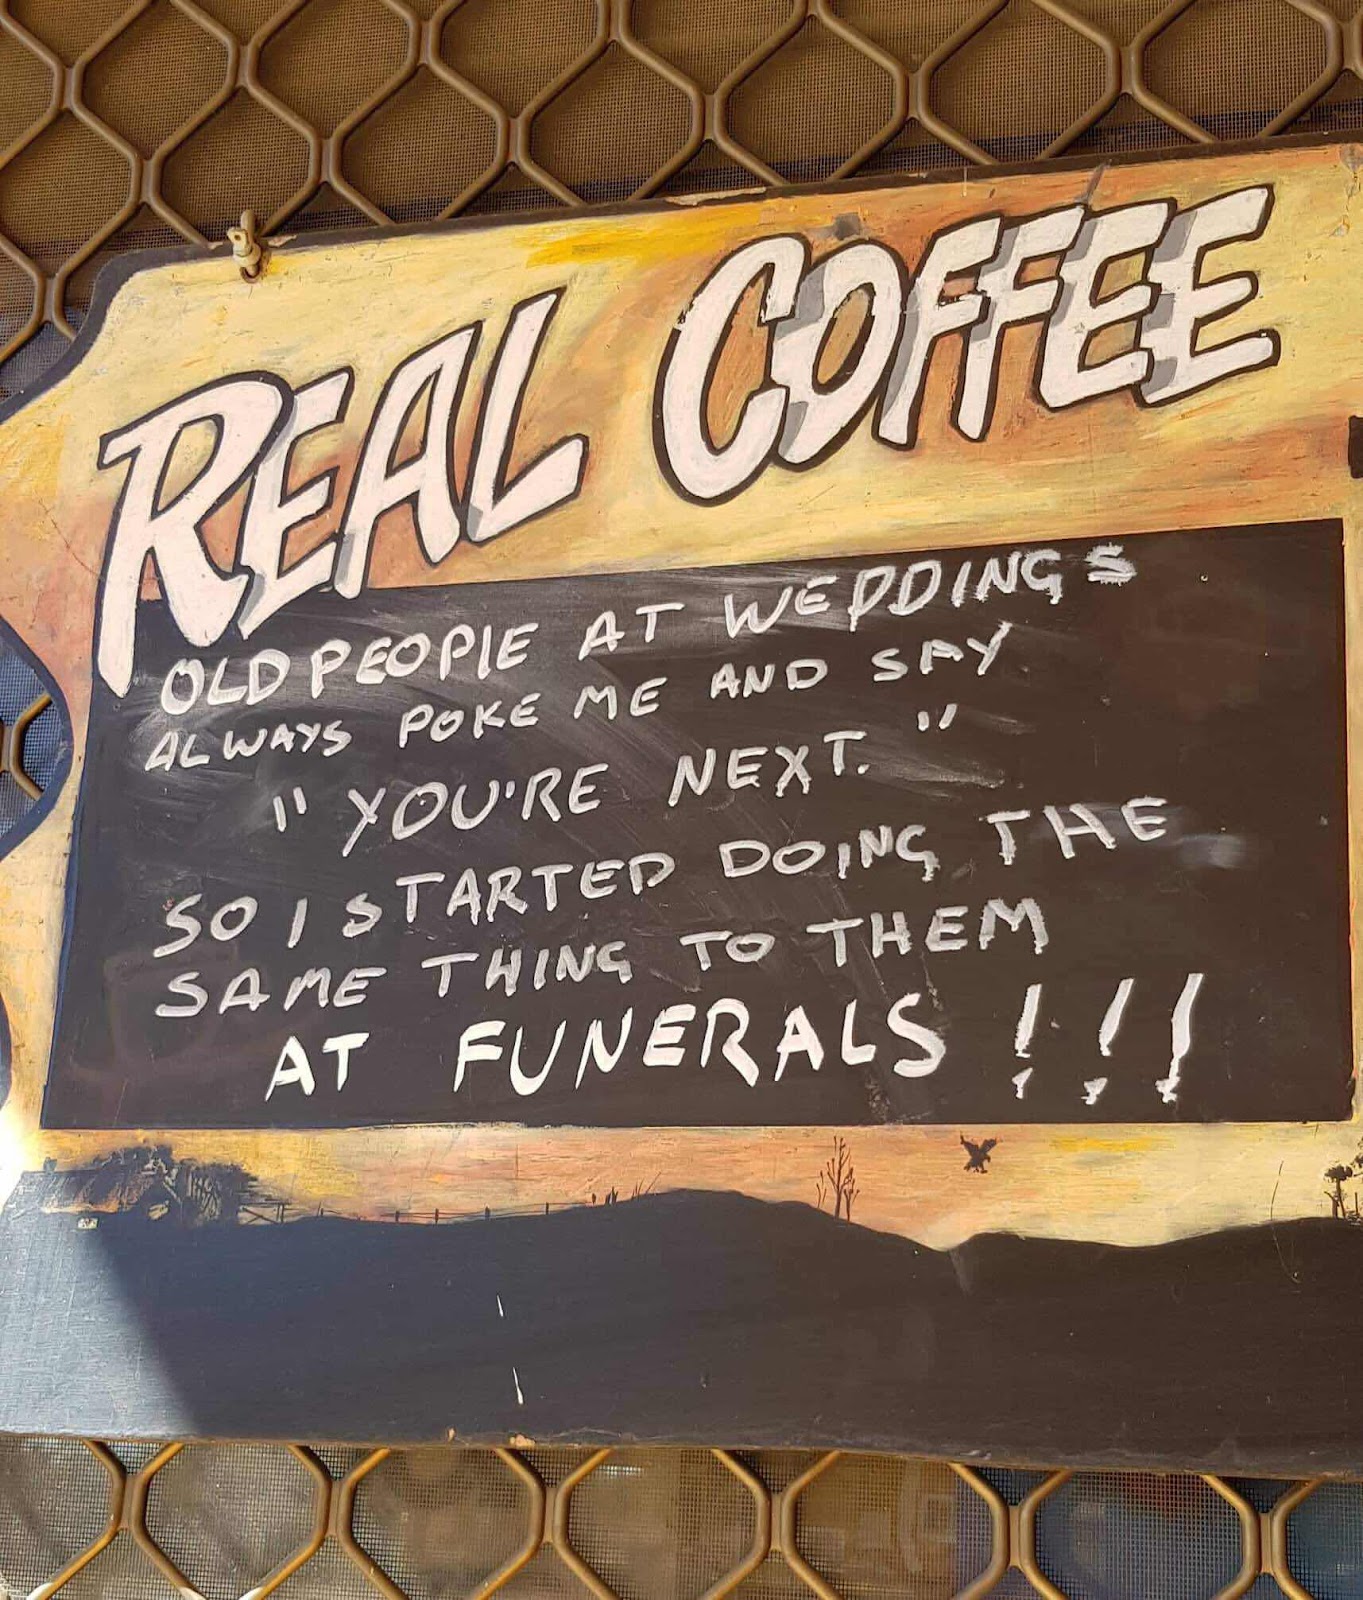 REAL COFFEE
OLD PEOPlE AT WEDDINGS
ALWAYS POKE ME AND SAY
"YOU'RE NEXT."
SO I STARTED DOING THE
SAME THING TO THEM
AT FUNERALS!!!